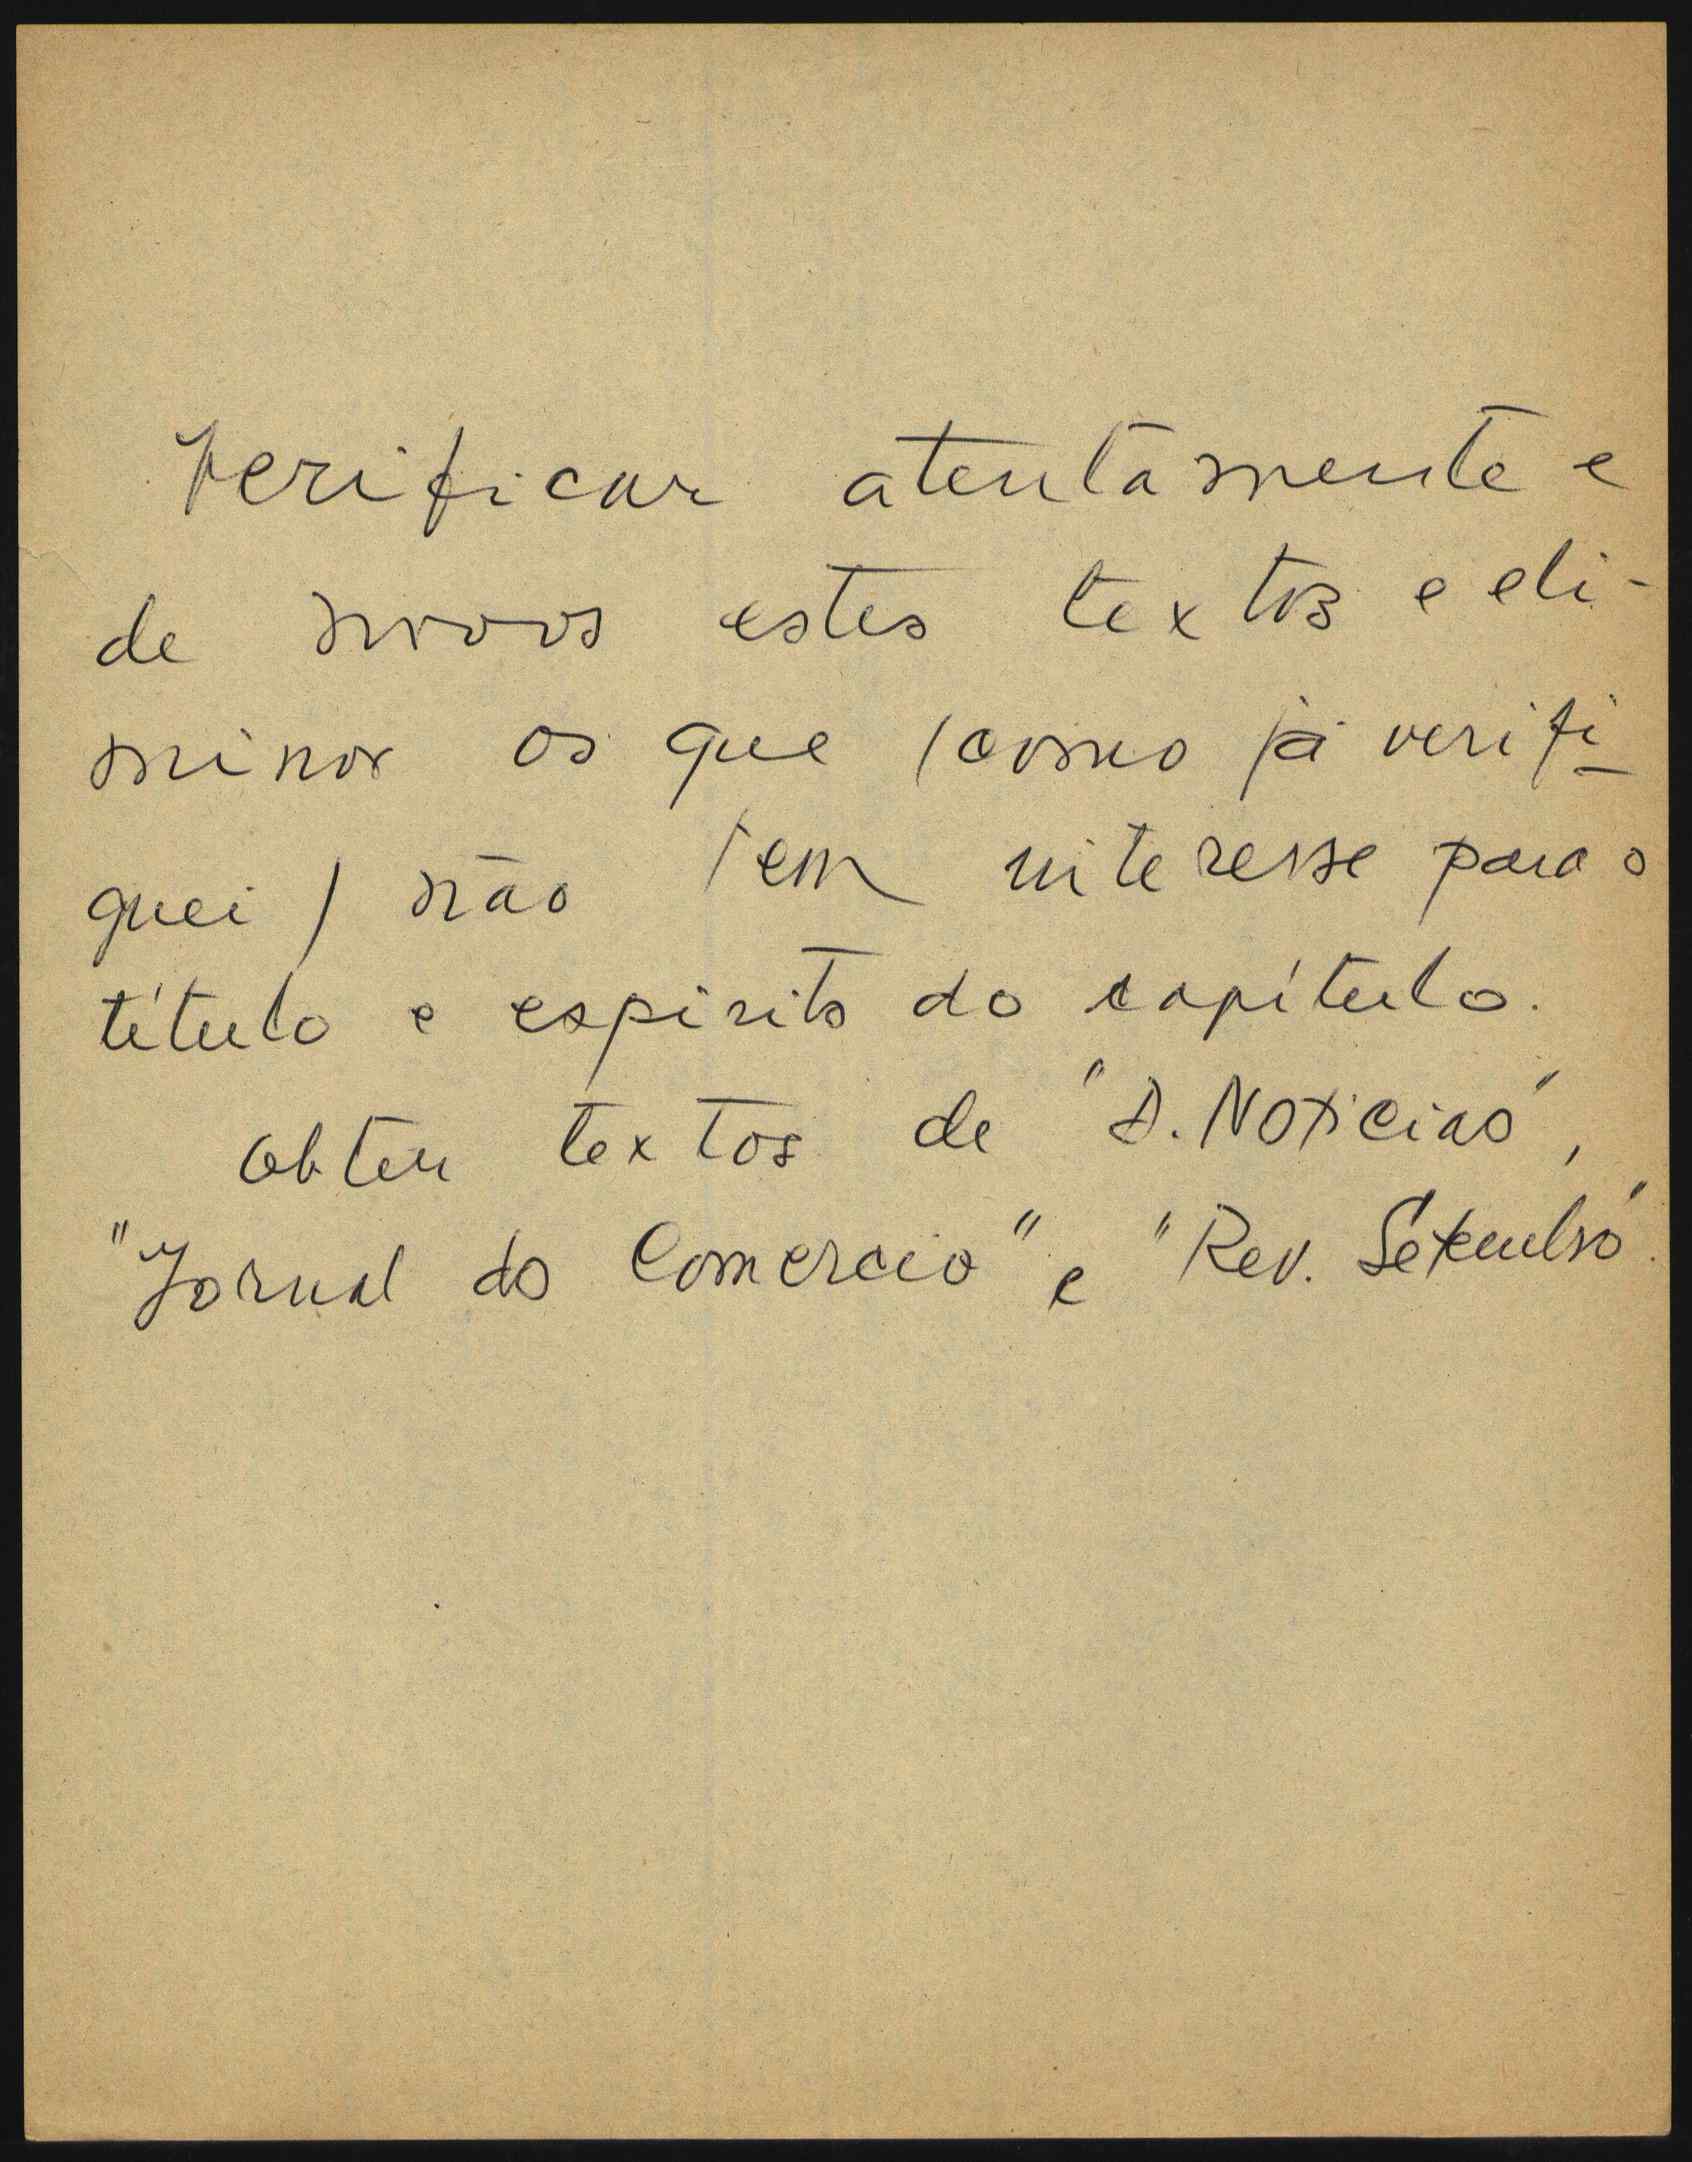 Verificar atentamente e
de novo estes textos e eli-
minar os que (como já verifi-
quei) não tem interesse para o
título e espirito do capítulo.
Obter textos de "D. Noticias",
"Jornal do Comercio" e "Rev. Setembro".